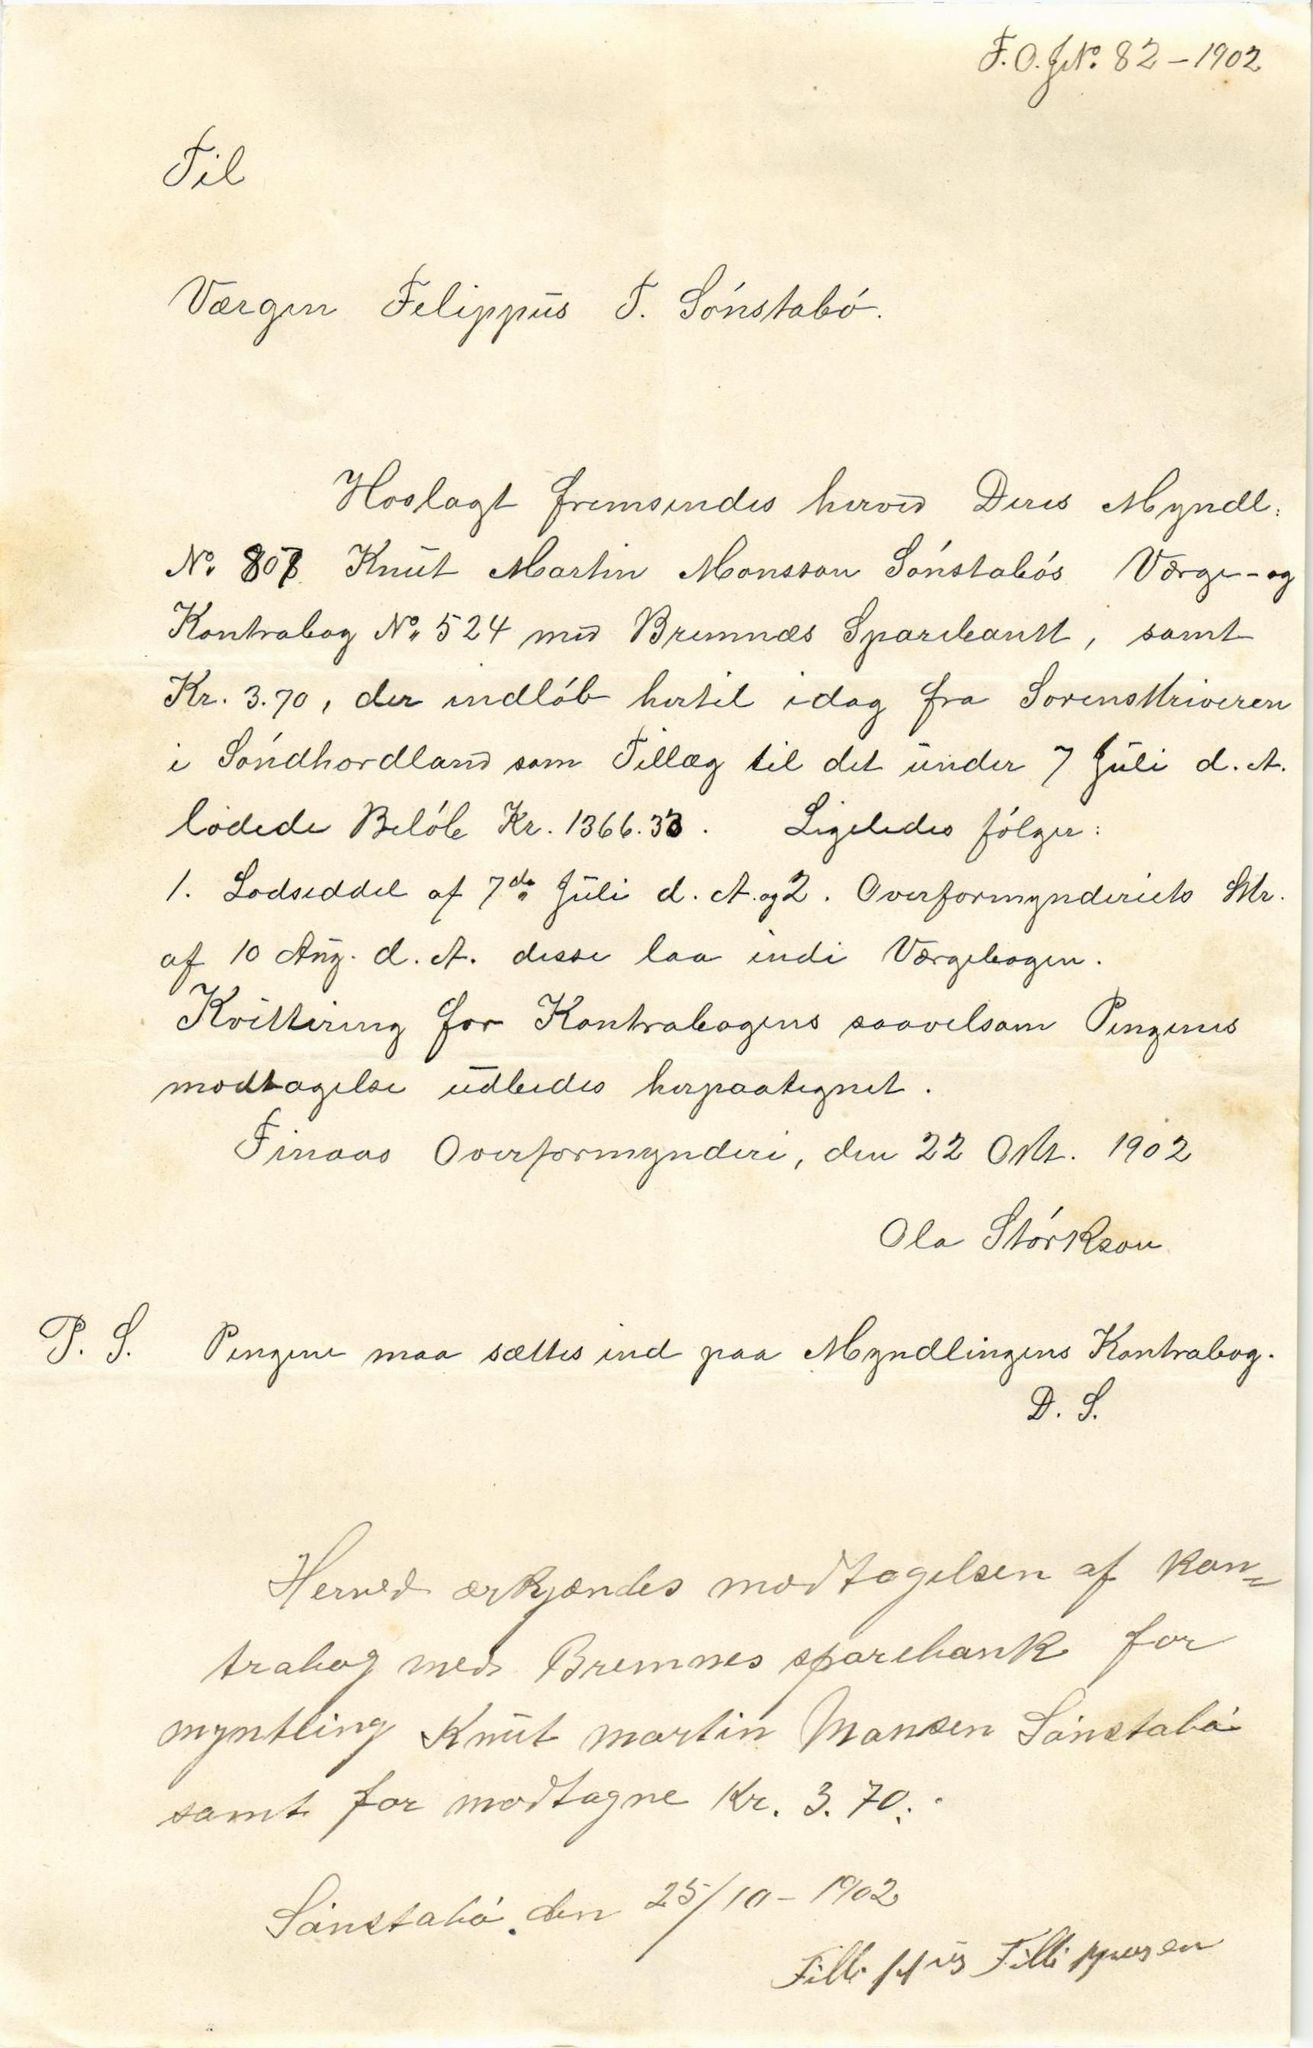 F.O.J.No. 82-1902
Til
Værgen Felippus F. Sónstabó.
Hoslagt fremsendes herved Deres Myndl.
No. 807 Knut Martin Monsson Sónstabós Værge- og
Kontrabog No. 524 med Bremnæs Sparebank, samt
Kr. 3.70, der indlób hertil idag fra Sorenskriveren
i Sóndhordland som Tillæg til det under 7 Juli d. A.
lodede Belób Kr. 1366.33. Ligeledes fólger:
1. Lodseddel af 7de Juli d. A. og 2. Overformynderiets Skr.
af 10 Aug. d. A. disse laa indi Værgebogen.
Kvittering for Kontrabogens saavelsom Pengenes
modtagelse udbedes herpaategnet.
Finaas Overformynderi, den 22 Okt. 1902
Ola Stórkson
P. S. Pengene maa sættes ind paa Myndlingens Kontrabog.
D. S.
Herved ærkjændes modtagelsen af kon=
trabog med Bremnes sparebank for
myntling Knut martin Monsen Sónstabó
samt for modtagne Kr. 3.70.
Sónstabó. den 25/10-1902
Fillippus Fillippusen